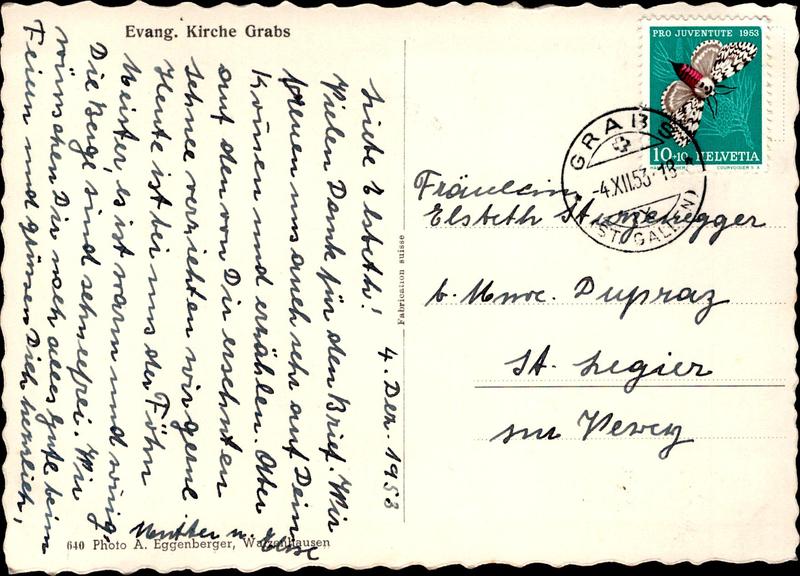 Evang. Kirche Grabs
4. Dez. 1953
Liebe Elsbeth!
Vielen Dank für den Brief. Wir
freuen uns auch sehr auf Dein
Kommen und erzählen. Aber
auf den von Dir ersehnten
Schnee verzichten wir gerne
Heute ist bei uns der Föhn
Meister, es ist warm und
Die Berge sind schneefrei. Wir
wünschen Dir noch alles Gute beim
Feiern und grüssen Dich herzlich,
Mutter u. Elise
640 Photo A. Eggenberger, Watzenhausen
Fabrication suisse
PRO JUVENTUTE 1953
10+10 HELVETIA
COURVOISIER S.A.
GRABS
-4.XII.53-18
(ST. GALLEN)
Fräulein
Elsbeth Sturzenegger
b. Mme. Dupraz
St. Legier
sur Vevey